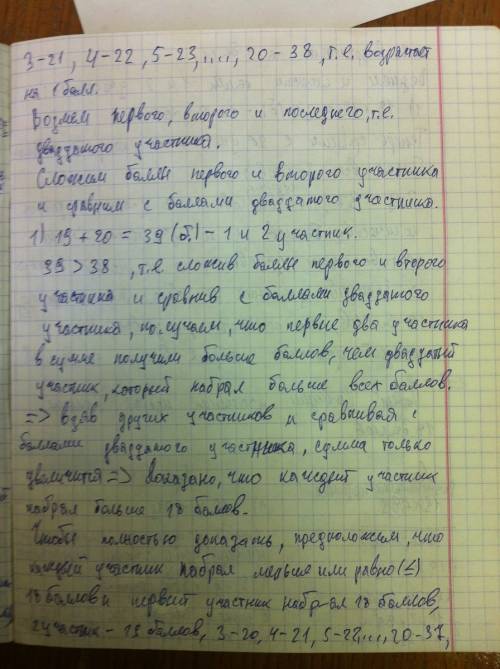 3-21, 4-22, 5-23, ...., 20-38, т.е. возрастает
на 1 балл.
Возмем первого, второго и последнего, т.е.
двадцатого участника.
Сложим баллы первого и второго участника
и сравним с баллами двадцатого участника.
1) 19 + 20 = 39 (б.) - 1 и 2 участник.
39 > 38, т.е. сложив баллы первого и второго
участника и сравнив с баллами двадцатого
участника, получаем, что первые два участника
в сумме получили больше баллов, чем двадцатый
участник, который набрал больше всех баллов.
=> взяв других участников и сравнивая с
баллами двадцатого участника, сумма только
увеличится => доказано, что каждый участник
набрал больше 18 баллов.
Чтобы полностью доказать, предположим, что
каждый участник набрал меньше или равно (≤)
18 баллов и первый участник набрал 18 баллов,
2 участник - 19 баллов, 3-20, 4-21, 5-22,..., 20-37,